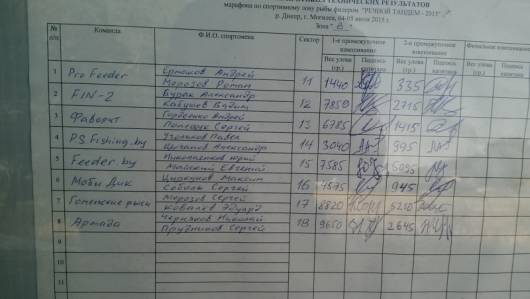 ТЕХНИЧЕСКИХ РЕЗУЛЬТАТОВ
марафона по спортивному лову рыбы фидером "РЕЧНОЙ ТАНДЕМ - 2015"
р. Днепр, г. Могилев, 04-05 июля 2015 г.
Зона "В"
№ п/п Команда Ф.И.О. спортсмена Сектор 1-е промежуточное взвешивание 2-е промежуточное взвешивание Финальное взвешивание
Вес улова (гр.) Подпись капитана Вес улова (гр.) Подпись капитана Вес улова (гр.) Подпись капитана
1 Pro Feeder Ермаков Андрей 11 1440 335
Морозов Роман
2 FIN-2 Бурак Александр 12 7850 2715
Кабушев Вадим
3 Фаворит Гордеенко Андрей 13 6785 1415
Сергей
4 PS Fishing.by Павел 14 3040 995
Александр
5 Feeder.by Николаенков Юрий 15 7585 5095
Майский Евгений
6 Мобы Дик Максим 16 1575 945
Соболь Сергей
7 Гомельские рыси Морозов Сергей 17 8820 5210
Ковалев Эдуард
8 Армада Черняков Николай 18 9650 2645
Прудников Сергей
9
10
11